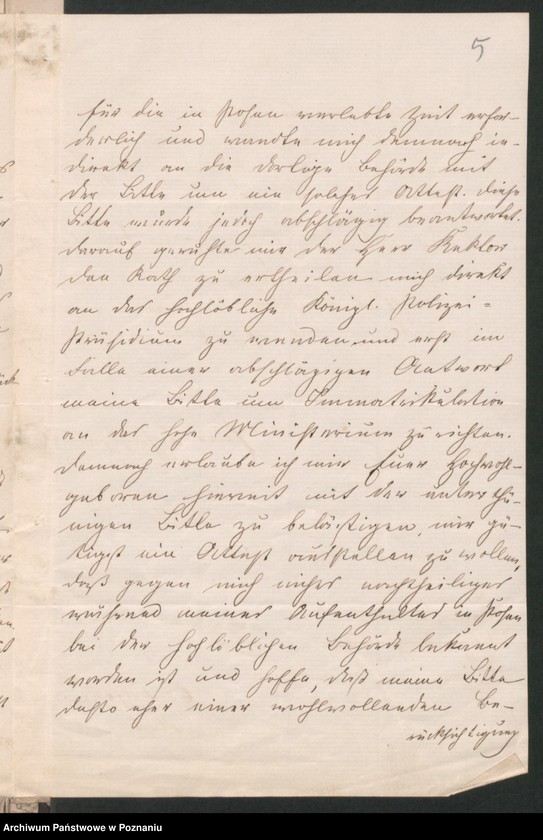 5
für die in Posen verlebte Zeit erfor-
derlich und wandte mich demnach in-
direkt an die dortige Behörde mit
der Bitte um ein solches Attest. Diese
Bitte wurde jedoch abschlägig beantwortet.
Darauf geruhte mir der Herr Rektor
den Rath zu ertheilen mich direkt
an das hochlöbliche Königl. Polizei=
Präsidium zu wenden und erst im
Falle einer abschlägigen Antwort
meine Bitte um Immatrikulation
an das hohe Ministerium zu richten.
Demnach erlaube ich mir Euer Hochwohl-
geboren hiermit mit der unterthä-
nigen Bitte zu belästigen, mir gü-
tigst ein Attest ausstellen zu wollen,
daß gegen mich nichts nachtheiliges
während meines Aufenthaltes in Posen
bei der hochlöblichen Behörde bekannt
worden ist und hoffe, daß meine Bitte
desto eher einer wohlwollenden Be-
rücksichtigung
Archiwum Państwowe w Poznaniu